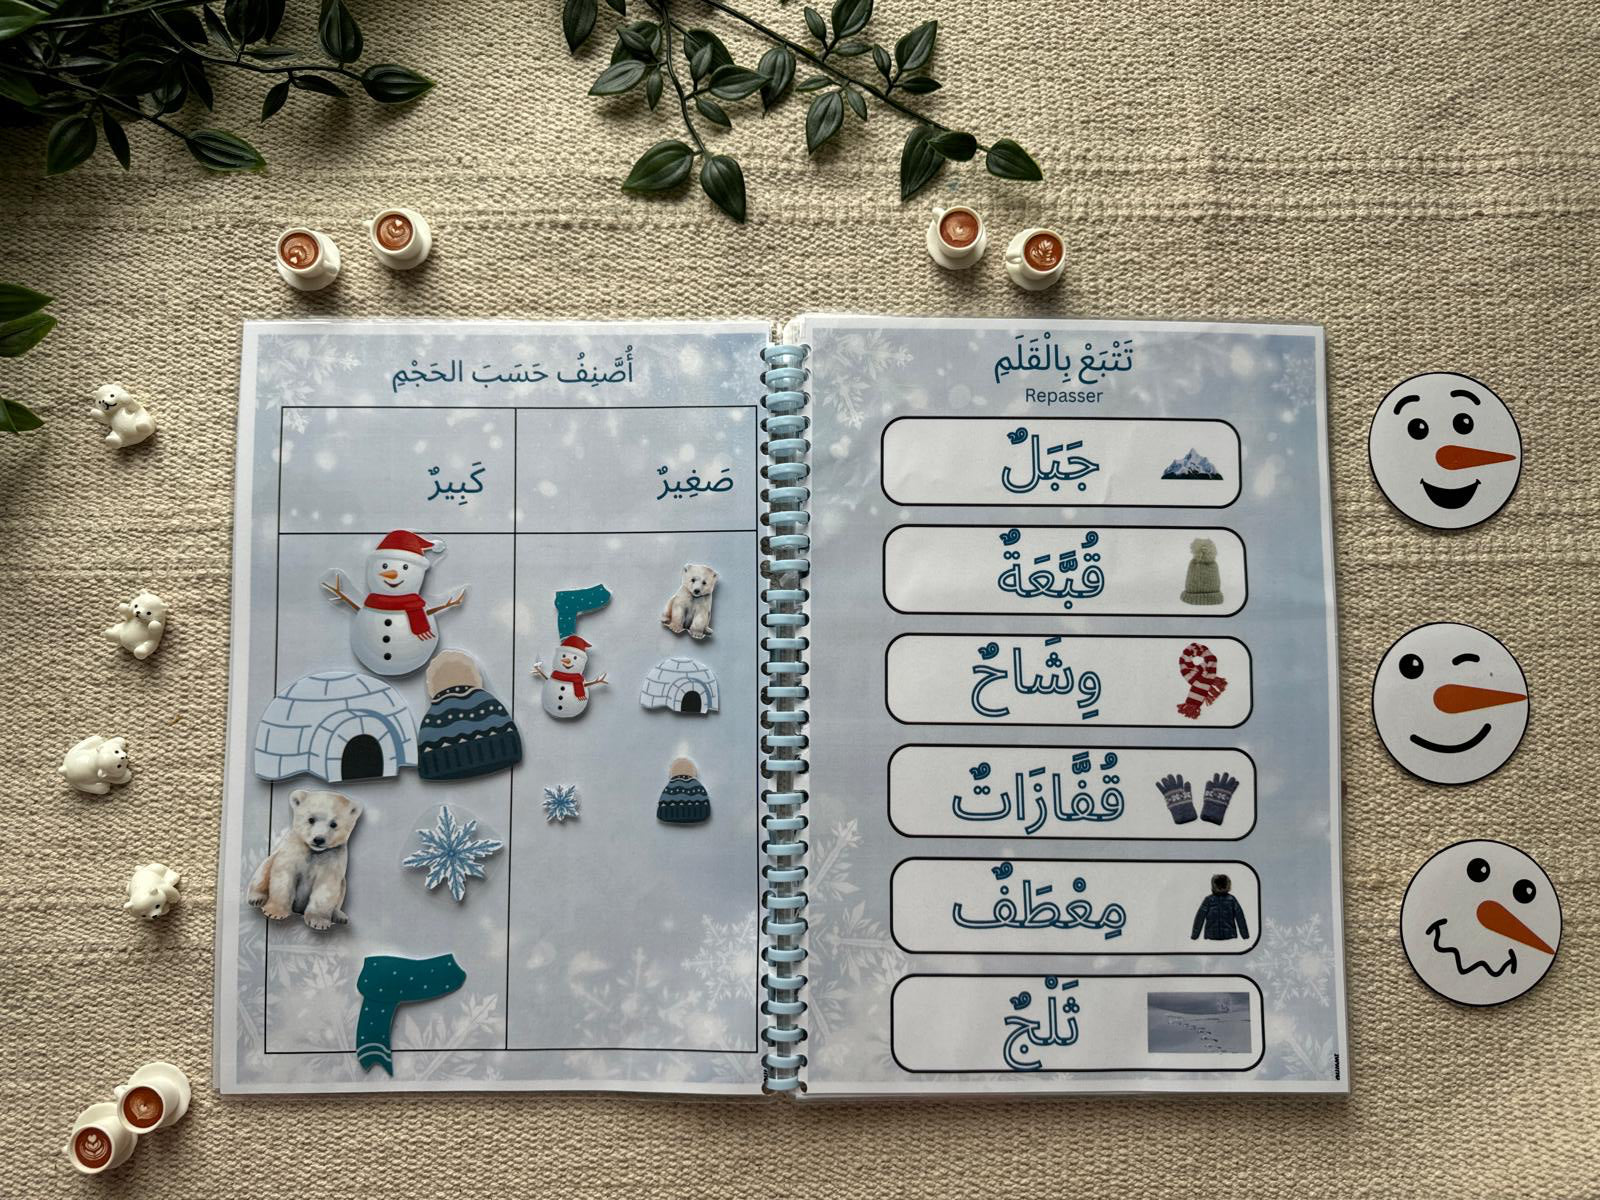 أُصَّنِفُ حَسَبَ الحَجْمِ
صَغِيرٌ
كَبِيرٌ
تَتْبَعْ بِالْقَلَمِ
Repasser
جَبَلٌ
قُبَّعَةٌ
وِشَاحٌ
قُفَّازَاتٌ
مِعْطَفٌ
ثَلْجٌ